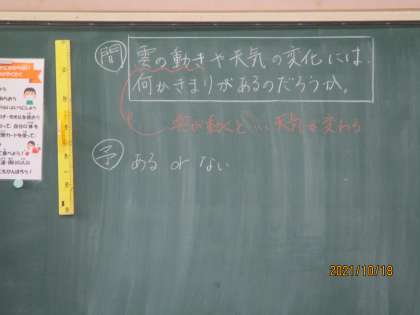 問 雲の動きや天気の変化には、
何かきまりがあるのだろうか。
雲が動くと…天気も変わる
予 ある or ない
2021/10/18